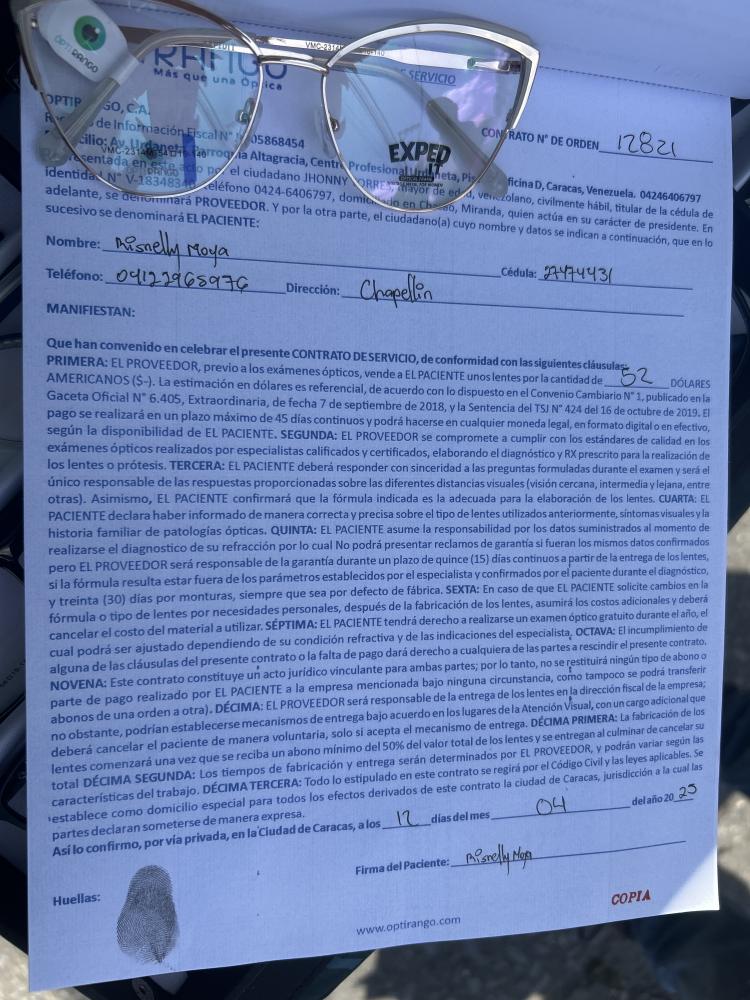 OPTIRANGO
RANGO
Más que una Óptica
DE SERVICIO
VMC-2314
140
OPTIRANGO, C.A.
CONTRATO N° DE ORDEN 12821
de Información Fiscal N° 05868454
EXPEDIT
Av. Urdaneta, Parroquia Altagracia, Centro Profesional Urdaneta, Piso Oficina D, Caracas, Venezuela. 04246406797
en este acto por el ciudadano JHONNY mayor de edad, venezolano, civilmente hábil, titular de la cédula de
identidad N° V-18348340 teléfono 0424-6406797, domiciliado en Chacao, Miranda, quien actúa en su carácter de presidente. En
adelante, se denominará PROVEEDOR. Y por la otra parte, el ciudadano(a) cuyo nombre y datos se indican a continuación, que en lo
sucesivo se denominará EL PACIENTE:
Nombre: Risnelly Moya Cédula: 27474431
Teléfono: 04122965976 Dirección: Chapellin
MANIFIESTAN:
Que han convenido en celebrar el presente CONTRATO DE SERVICIO, de conformidad con las siguientes cláusulas:
PRIMERA: EL PROVEEDOR, previo a los exámenes ópticos, vende a EL PACIENTE unos lentes por la cantidad de 52 DÓLARES
AMERICANOS ($-). La estimación en dólares es referencial, de acuerdo con lo dispuesto en el Convenio Cambiario N° 1, publicado en la
Gaceta Oficial N° 6.405, Extraordinaria, de fecha 7 de septiembre de 2018, y la Sentencia del TSJ N° 424 del 16 de octubre de 2019. El
pago se realizará en un plazo máximo de 45 días continuos y podrá hacerse en cualquier moneda legal, en formato digital o en efectivo,
según la disponibilidad de EL PACIENTE. SEGUNDA: EL PROVEEDOR se compromete a cumplir con los estándares de calidad en los
exámenes ópticos realizados por especialistas calificados y certificados, elaborando el diagnóstico y RX prescrito para la realización de
los lentes o prótesis. TERCERA: EL PACIENTE deberá responder con sinceridad a las preguntas formuladas durante el examen y será el
único responsable de las respuestas proporcionadas sobre las diferentes distancias visuales (visión cercana, intermedia y lejana, entre
otras). Asimismo, EL PACIENTE confirmará que la fórmula indicada es la adecuada para la elaboración de los lentes. CUARTA: EL
PACIENTE declara haber informado de manera correcta y precisa sobre el tipo de lentes utilizados anteriormente, síntomas visuales y la
historia familiar de patologías ópticas. QUINTA: EL PACIENTE asume la responsabilidad por los datos suministrados al momento de
realizarse el diagnostico de su refracción por lo cual No podrá presentar reclamos de garantía si fueran los mismos datos confirmados
pero EL PROVEEDOR será responsable de la garantía durante un plazo de quince (15) días continuos a partir de la entrega de los lentes,
si la fórmula resulta estar fuera de los parámetros establecidos por el especialista y confirmados por el paciente durante el diagnóstico,
y treinta (30) días por monturas, siempre que sea por defecto de fábrica. SEXTA: En caso de que EL PACIENTE solicite cambios en la
fórmula o tipo de lentes por necesidades personales, después de la fabricación de los lentes, asumirá los costos adicionales y deberá
cancelar el costo del material a utilizar. SÉPTIMA: EL PACIENTE tendrá derecho a realizarse un examen óptico gratuito durante el año, el
cual podrá ser ajustado dependiendo de su condición refractiva y de las indicaciones del especialista. OCTAVA: El incumplimiento de
alguna de las cláusulas del presente contrato o la falta de pago dará derecho a cualquiera de las partes a rescindir el presente contrato.
NOVENA: Este contrato constituye un acto jurídico vinculante para ambas partes; por lo tanto, no se restituirá ningún tipo de abono o
parte de pago realizado por EL PACIENTE a la empresa mencionada bajo ninguna circunstancia, como tampoco se podrá transferir
abonos de una orden a otra). DÉCIMA: EL PROVEEDOR será responsable de la entrega de los lentes en la dirección fiscal de la empresa;
no obstante, podrían establecerse mecanismos de entrega bajo acuerdo en los lugares de la Atención Visual, con un cargo adicional que
deberá cancelar el paciente de manera voluntaria, solo si acepta el mecanismo de entrega. DÉCIMA PRIMERA: La fabricación de los
lentes comenzará una vez que se reciba un abono mínimo del 50% del valor total de los lentes y se entregan al culminar de cancelar su
total DÉCIMA SEGUNDA: Los tiempos de fabricación y entrega serán determinados por EL PROVEEDOR, y podrán variar según las
características del trabajo. DÉCIMA TERCERA: Todo lo estipulado en este contrato se regirá por el Código Civil y las leyes aplicables. Se
establece como domicilio especial para todos los efectos derivados de este contrato la ciudad de Caracas, jurisdicción a la cual las
partes declaran someterse de manera expresa.
Así lo confirmo, por vía privada, en la Ciudad de Caracas, a los 12 días del mes 04 del año 20 25
Firma del Paciente: Risnelly Moya
Huellas:
COPIA
www.optirango.com